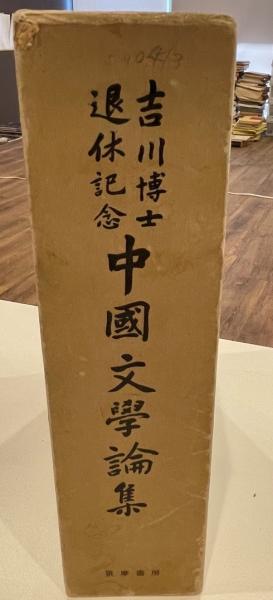 吉川博士
退休記念
中國文學論集
筑摩書房